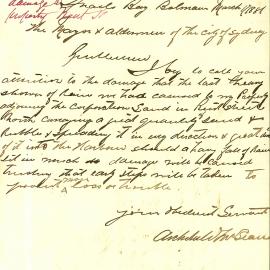 damage to Snails Bay Balmain March 1881
property
The Mayor & aldermen of the city of Sydney
Gentlemen
I beg to call your
attention to the damage that the last heavy
shower of rain we had caused to my Property
adjoining the Corporation Land in Kent Street
North carrying a great quantity sand &
Rubble & spreading it in any direction & great
of it into the House should a heavy fall of Rain
it in much damage will be caused
trusting that early steps will be taken to
prevent loss or trouble
Your Obedient Servant